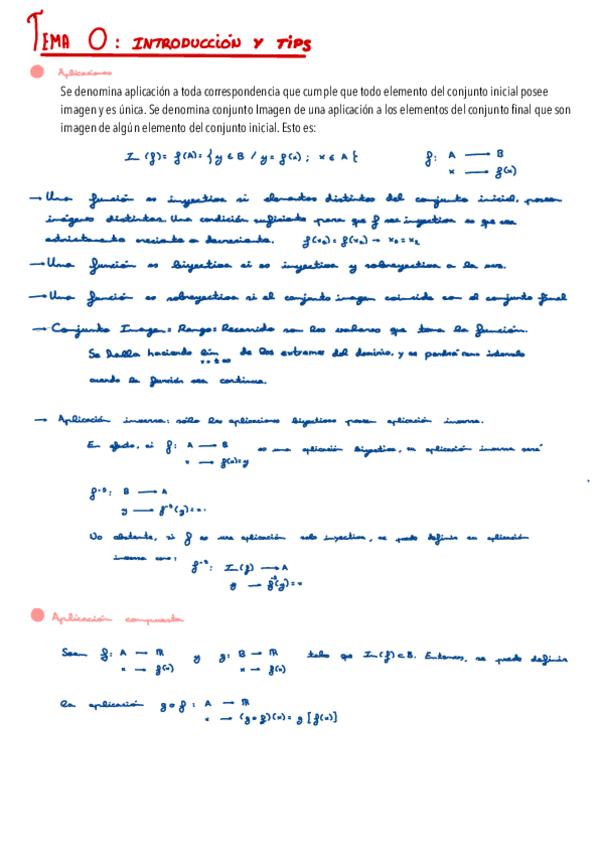 TEMA 0: INTRODUCCIÓN Y TIPS
Aplicaciones
Se denomina aplicación a toda correspondencia que cumple que todo elemento del conjunto inicial posee
imagen y es única. Se denomina conjunto Imagen de una aplicación a los elementos del conjunto final que son
imagen de algún elemento del conjunto inicial. Esto es:
Im (f) = f(A) = { y ∈ B / y = f(x) ; x ∈ A } f: A → B
x → f(x)
→ Una función es inyectiva si elementos distintos del conjunto inicial, poseen
imágenes distintas. Una condición suficiente para que f sea inyectiva es que sea
estrictamente creciente o decreciente. f(x₁) = f(x₂) → x₁ = x₂
→ Una función es biyectiva si es inyectiva y sobreyectiva a la vez.
→ Una función es sobreyectiva si el conjunto imagen coincide con el conjunto final
→ Conjunto Imagen = Rango = Recorrido son los valores que toma la función.
Se halla haciendo lim de los extremos del dominio, y se pondrá como intervalo
cuando la función sea continua.
→ Aplicación inversa: sólo las aplicaciones biyectivas poseen aplicación inversa.
En efecto, si f: A → B es una aplicación biyectiva, su aplicación inversa será
x → f(x)=y
f⁻¹: B → A
y → f⁻¹(y)=x
No obstante, si f es una aplicación solo inyectiva, se puede definir su aplicación
inversa como: f⁻¹: Im(f) → A
y → f⁻¹(y)=x
Aplicación compuesta
Sean f: A → ℝ y g: B → ℝ tales que Im(f) ⊂ B. Entonces, se puede definir
x → f(x) x → g(x)
la aplicación g∘f: A → ℝ
x → (g∘f)(x) = g[f(x)]